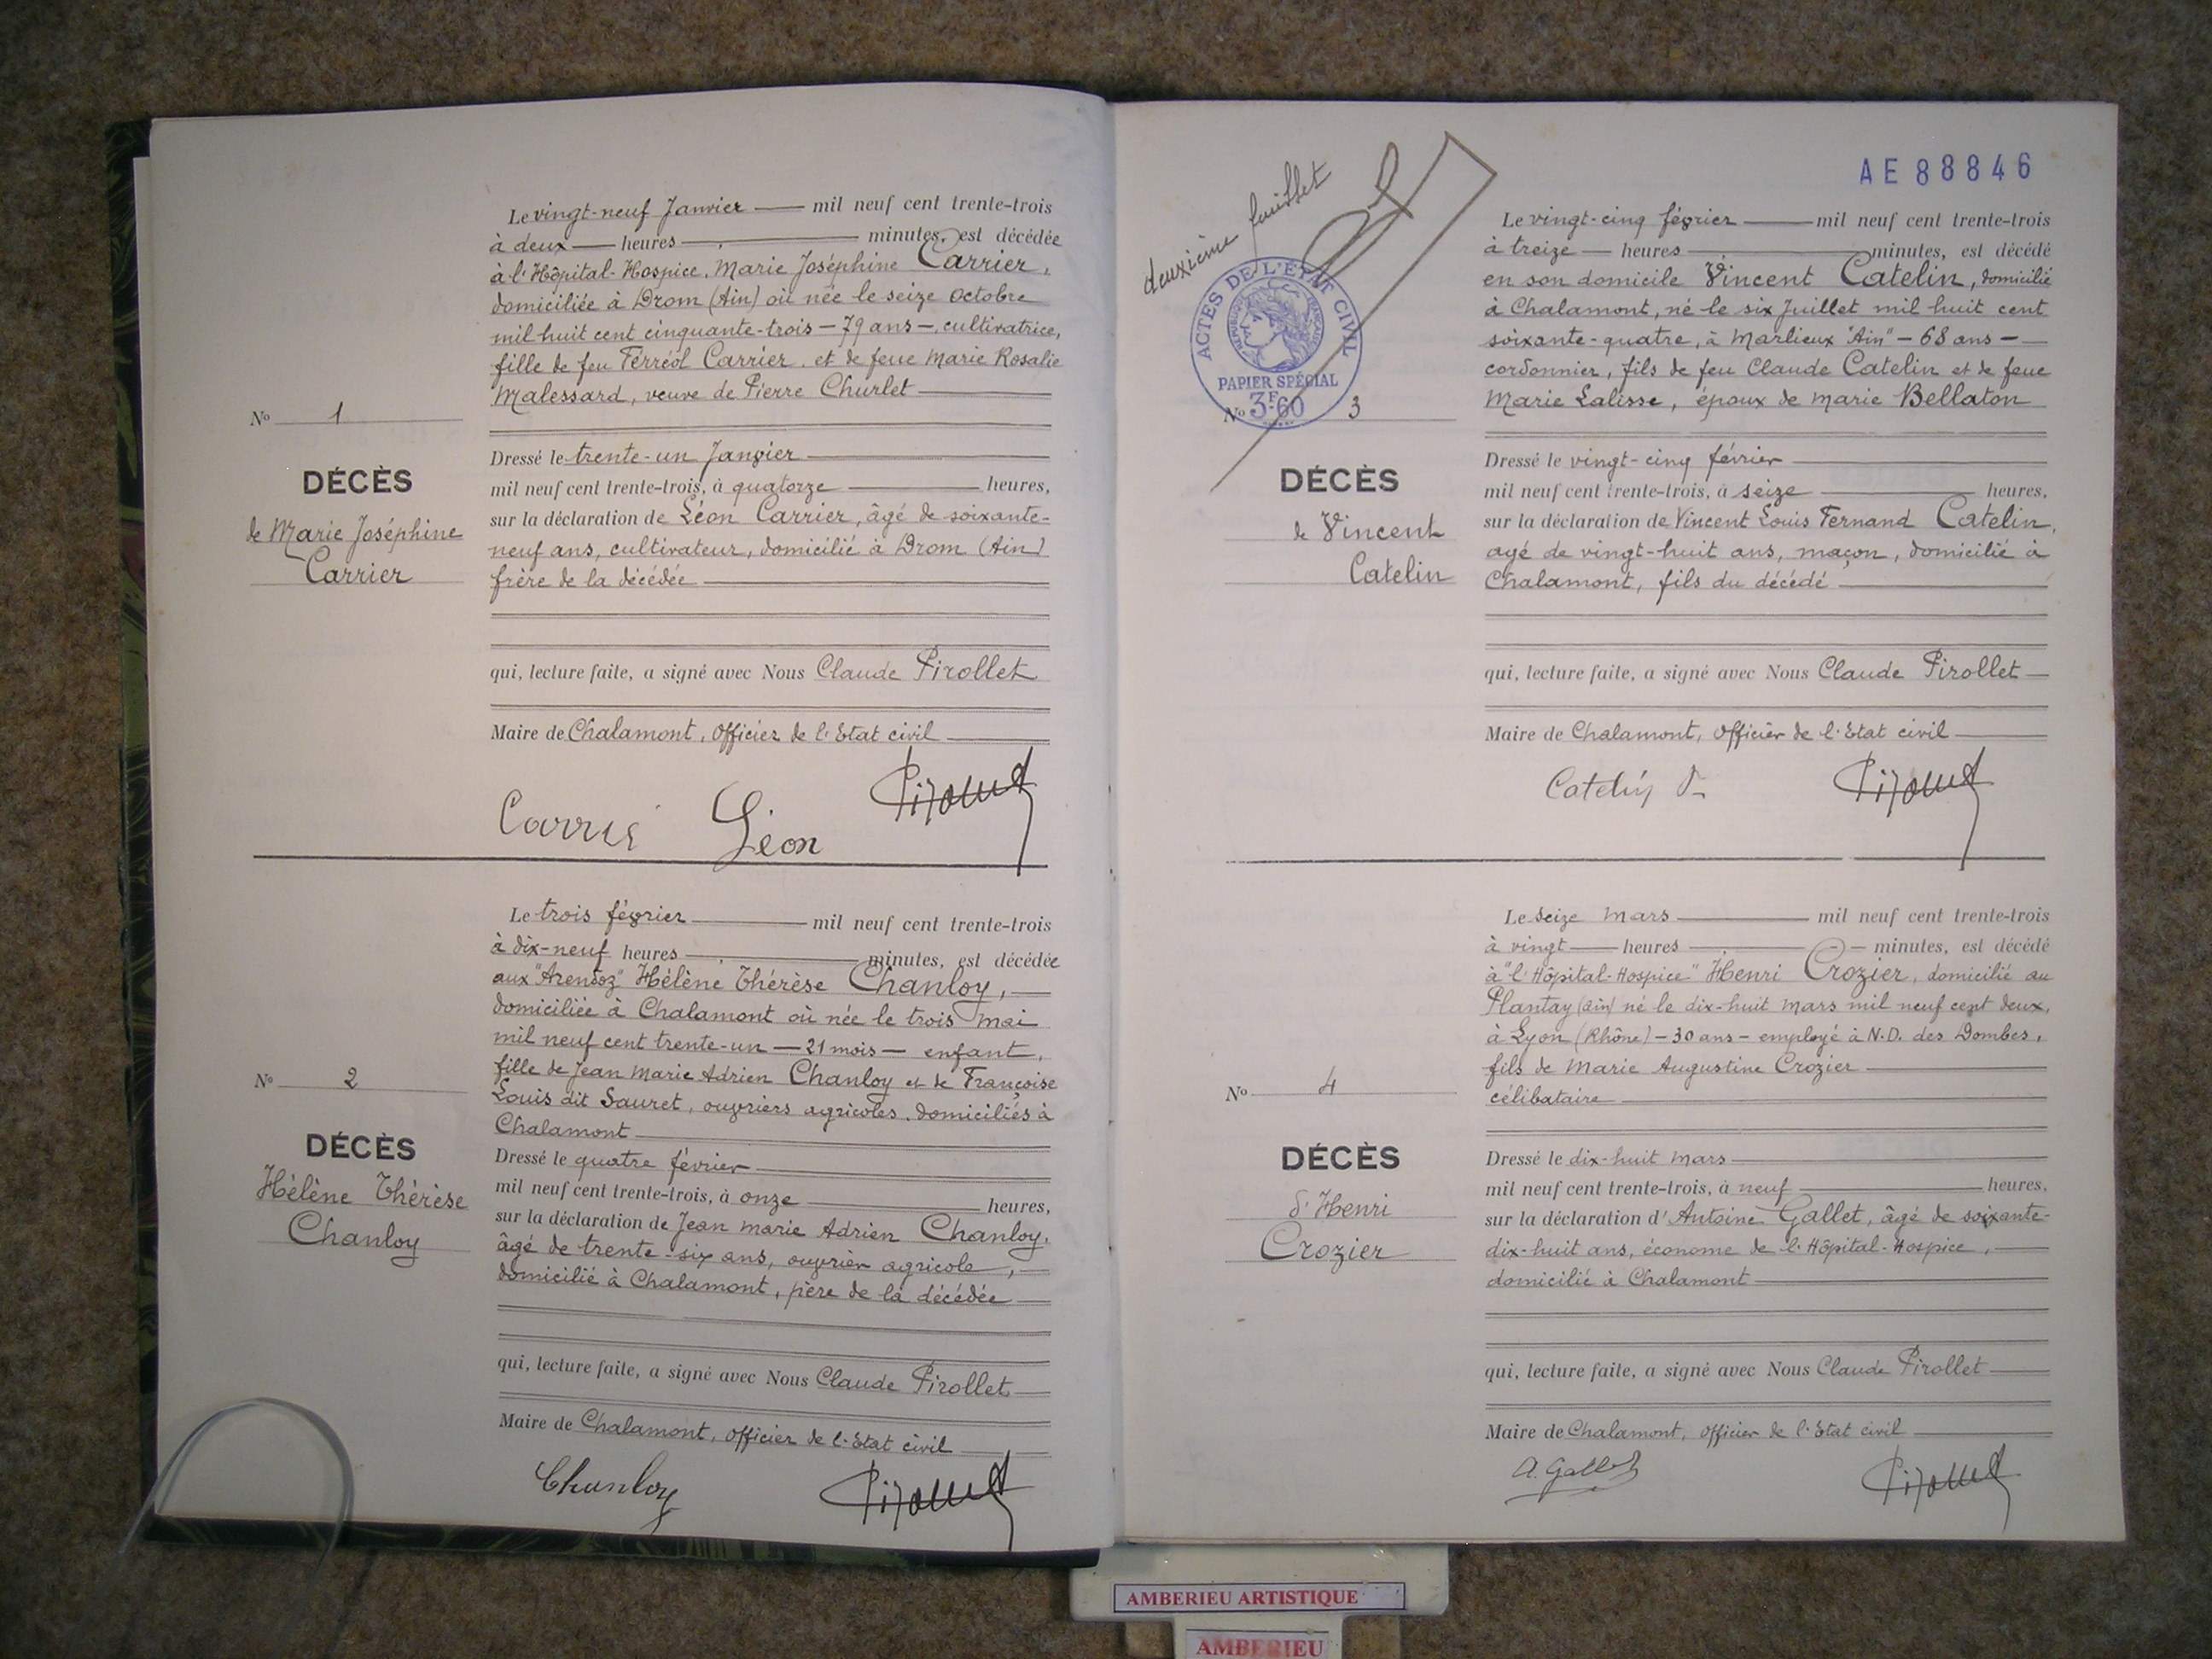 Le vingt-neuf Janvier — mil neuf cent trente-trois
à deux — heures — minutes, est décédée
à l'Hôpital-Hospice, Marie Joséphine Carrier,
domiciliée à Drom (Ain) où née le seize Octobre
mil huit cent cinquante-trois — 79 ans —, cultivatrice,
fille de feu Ferréol Carrier, et de feue Marie Rosalie
Malessard, veuve de Pierre Churlet
No 1
DÉCÈS
de Marie Joséphine
Carrier
Dressé le trente-un Janvier
mil neuf cent trente-trois, à quatorze heures,
sur la déclaration de Léon Carrier, âgé de soixante-
neuf ans, cultivateur, domicilié à Drom (Ain)
frère de la décédée
qui, lecture faite, a signé avec Nous Claude Pirollet
Maire de Chalamont, Officier de l'Etat civil
Léon
Le trois février — mil neuf cent trente-trois
à dix-neuf heures — minutes, est décédée
aux "Arendoz" Hélène Thérèse Chanloy,
domiciliée à Chalamont où née le trois Mai
mil neuf cent trente-un — 21 mois — enfant,
fille de Jean Marie Adrien Chanloy et de Françoise
Louis dit Sauret, ouvriers agricoles, domiciliés à
Chalamont
No 2
DÉCÈS
Hélène Thérèse
Chanloy
Dressé le quatre février
mil neuf cent trente-trois, à onze heures,
sur la déclaration de Jean Marie Adrien Chanloy,
âgé de trente-six ans, ouvrier agricole,
domicilié à Chalamont, père de la décédée
qui, lecture faite, a signé avec Nous Claude Pirollet
Maire de Chalamont, Officier de l'Etat civil
Chanloy
deuxième feuillet
AE 88846
ACTES DE L'ÉTAT CIVIL
RÉPUBLIQUE FRANÇAISE
PAPIER SPÉCIAL
3F.60
Le vingt-cinq février — mil neuf cent trente-trois
à treize — heures — minutes, est décédé
en son domicile Vincent Catelin, domicilié
à Chalamont, né le six Juillet mil huit cent
soixante-quatre, à Marlieux "Ain" — 68 ans —
cordonnier, fils de feu Claude Catelin et de feue
Marie Lalisse, époux de Marie Bellaton
No 3
DÉCÈS
de Vincent
Catelin
Dressé le vingt-cinq février
mil neuf cent trente-trois, à seize heures,
sur la déclaration de Vincent Louis Fernand Catelin,
agé de vingt-huit ans, maçon, domicilié à
Chalamont, fils du décédé
qui, lecture faite, a signé avec Nous Claude Pirollet
Maire de Chalamont, Officier de l'Etat civil
Le Seize Mars — mil neuf cent trente-trois
à vingt — heures — minutes, est décédé
à "l'Hôpital-Hospice" Henri Crozier, domicilié au
Plantay (Ain) né le dix-huit Mars mil neuf cent deux,
à Lyon (Rhône) — 30 ans — employé à N.D. des Dombes,
fils de Marie Augustine Crozier
célibataire
No 4
DÉCÈS
d'Henri
Crozier
Dressé le dix-huit Mars
mil neuf cent trente-trois, à neuf heures,
sur la déclaration d'Antoine Gallet, âgé de soixante-
dix-huit ans, économe de l'Hôpital-Hospice,
domicilié à Chalamont
qui, lecture faite, a signé avec Nous Claude Pirollet
Maire de Chalamont, Officier de l'Etat civil
A. Gallet
AMBERIEU ARTISTIQUE
AMBERIEU